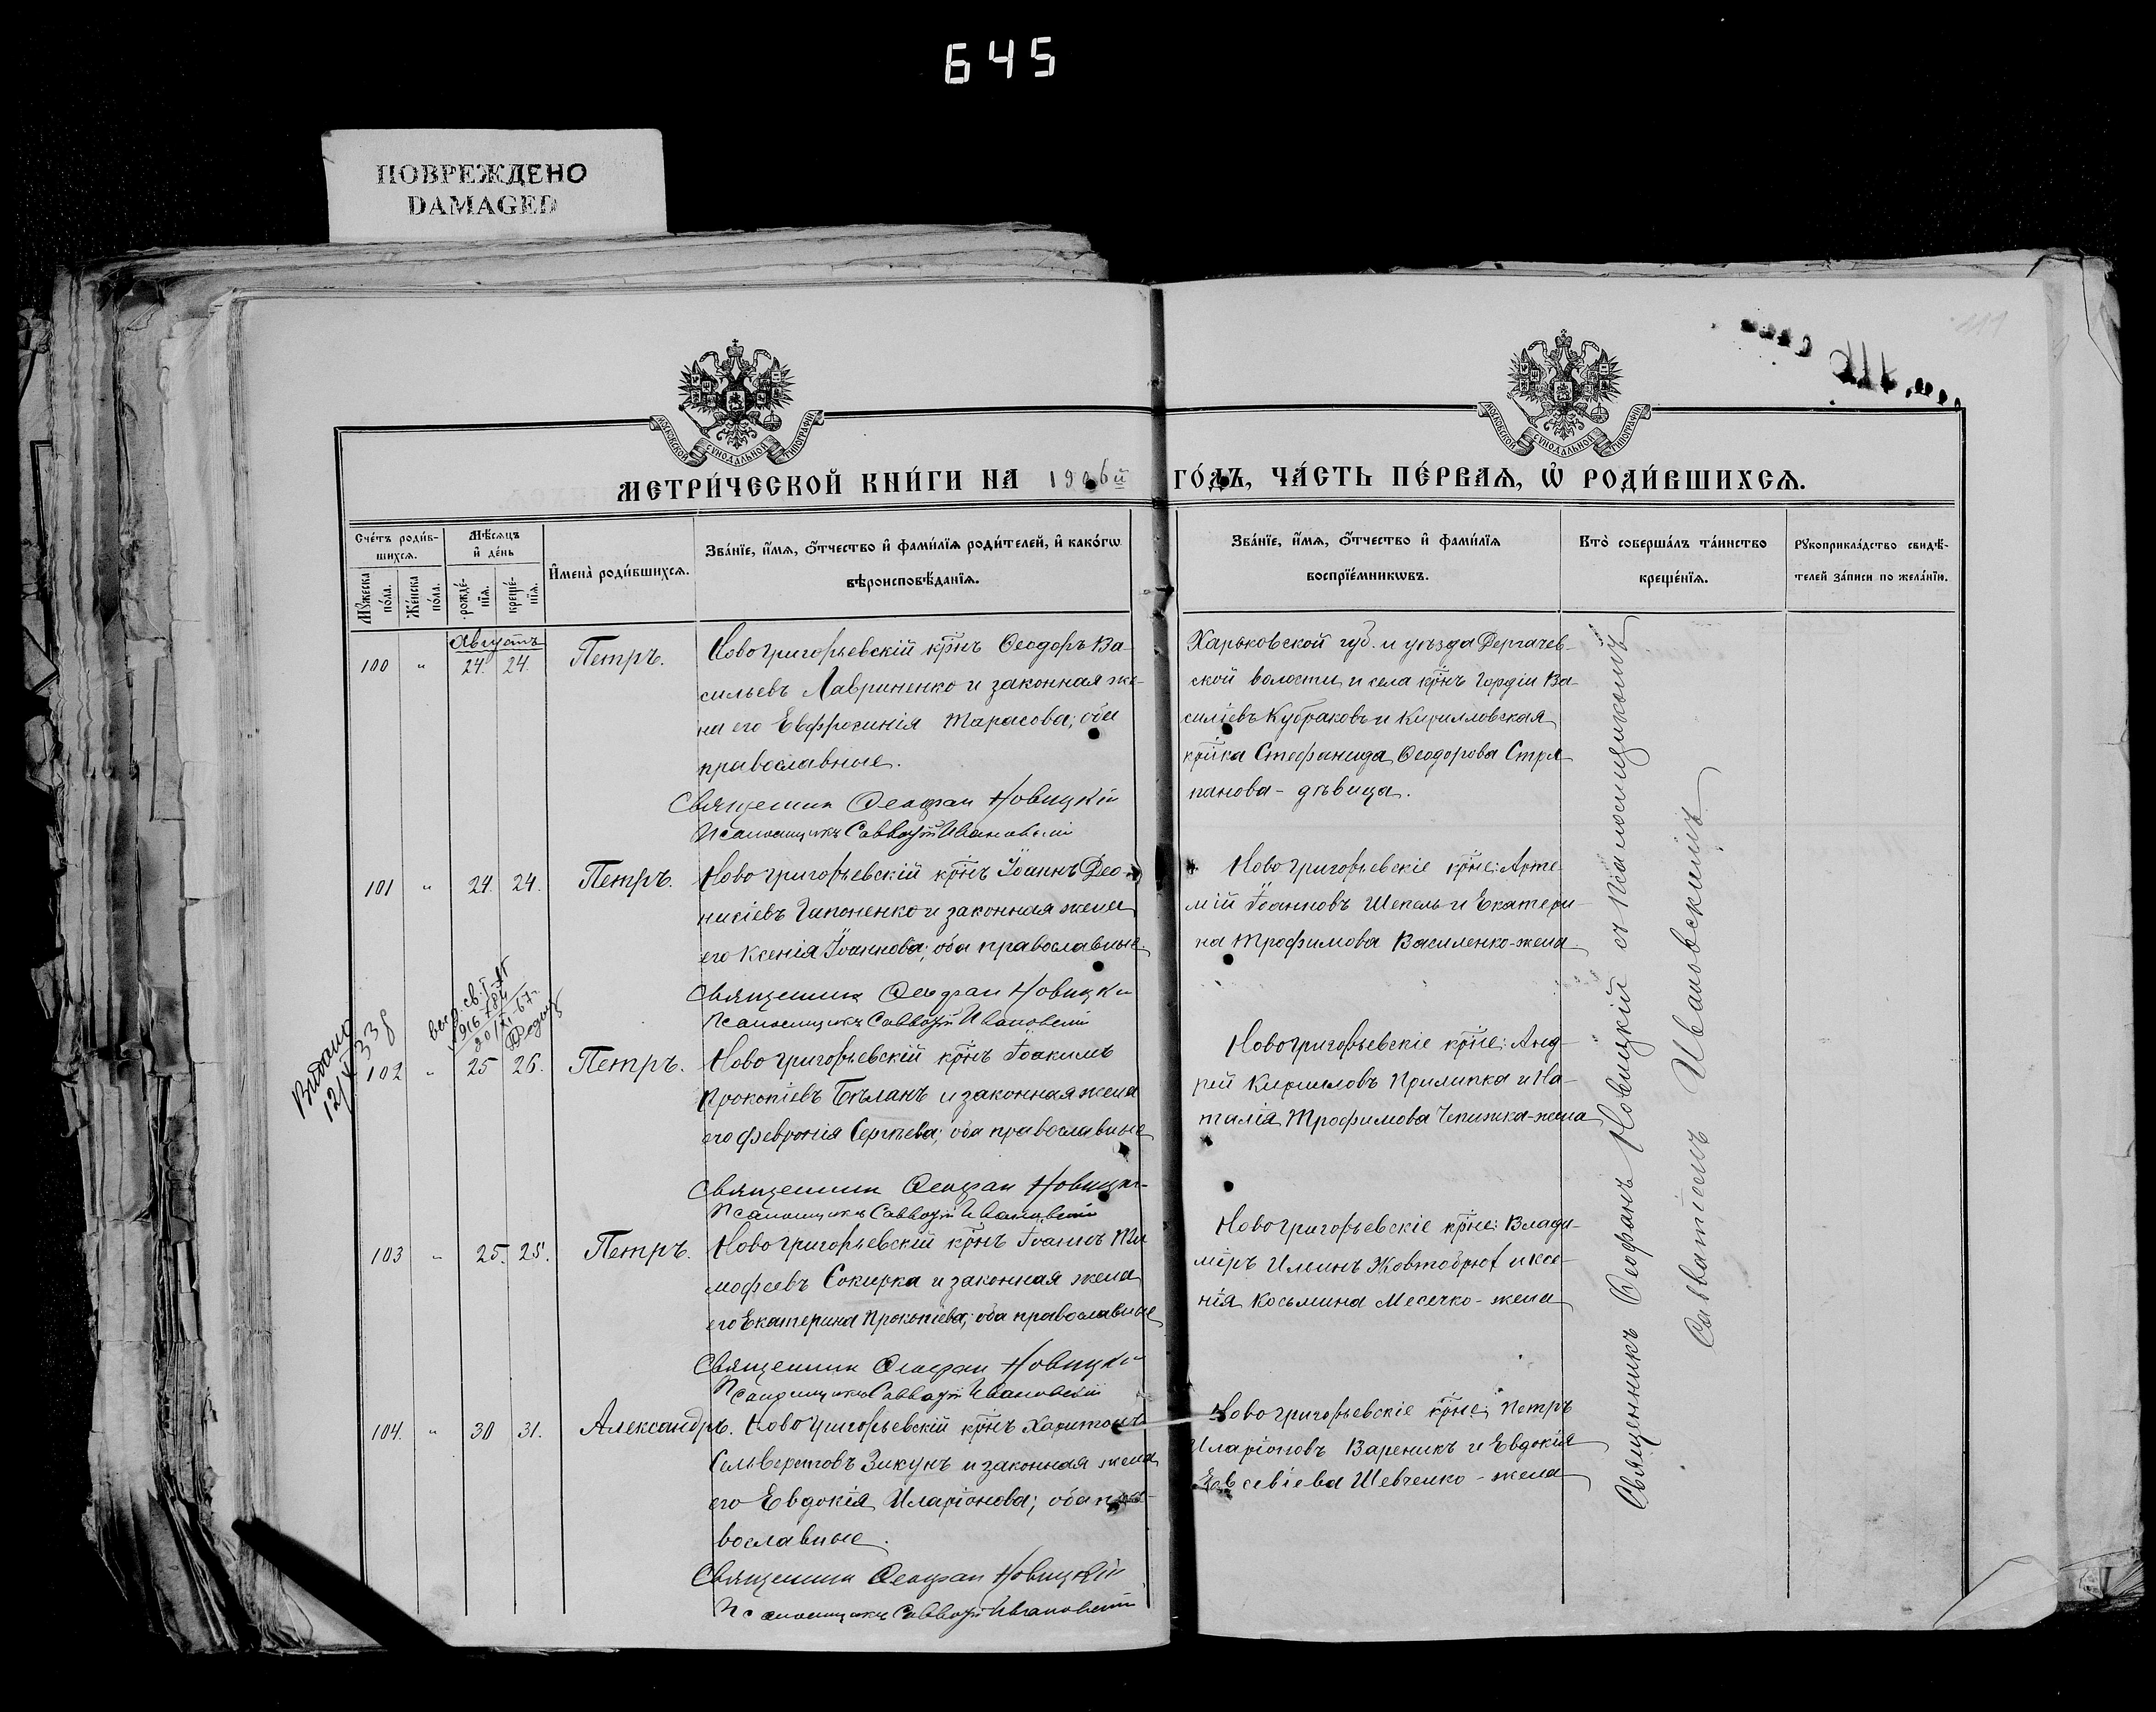 645
ПОВРЕЖДЕНО
DAMAGED
МОСКОВСКОЙ СУНОДАЛЬНОЙ ТИПОГРАФІИ
МОСКОВСКОЙ СУНОДАЛЬНОЙ ТИПОГРАФІИ
МЕТРИ́ЧЕСКОЙ КНИ́ГИ НА 1906й ГО́ДЪ, ЧА́СТЬ ПЕ́РВАѦ, Ѡ҆ РОДИ́ВШИХСѦ.
Сче́тъ роди́в-
шихсѧ.
Мꙋжеска по́ла.
Же́нска по́ла.
Мѣ́сѧцъ
и҆ де́нь
рожде́-
нїѧ.
креще́-
нїѧ.
И҆мена̀ роди́вшихсѧ.
Зва́нїе, и҆́мѧ, ѻ҆́тчество и҆ фами́лїѧ роди́телей, и҆ како́гѡ
вѣроисповѣ́данїѧ.
Зва́нїе, и҆́мѧ, ѻ҆́тчество и҆ фами́лїѧ
воспрїе́мникѡвъ.
Кто̀ соверша́лъ та́инство
креще́нїѧ.
Рꙋкоприкла́дство свидѣ́-
телей за́писи по жела́нїю.
Августъ
100 " 24. 24. Петръ.
Новогригорьевскій крнъ Ѳеодоръ Ва-
сильевъ Лавриненко и законная же-
на его Евфросинія Тарасова; оба
православные.
Священник Ѳеофан Новицкій
Псаломщикъ Савватій Ивановскій
Харьковской губ. и уѣзда Дергачев-
ской волости и села крнъ Гордій Ва-
силіевъ Кубраковъ и Кирилловская
крнка Стефанида Ѳеодорова Стря
панова - дѣвица.
101 " 24. 24. Петръ.
Новогригорьевскій крнъ Іоаннъ Део-
нисіевъ Гапоненко и законная жена
его Ксенія Іоаннова; оба православные
Священник Ѳеофан Новицки
Псаломщикъ Савватій Ивановскій
Новогригорьевскіе крне: Арте-
мій Іоанновъ Шепель и Екатери-
на Трофимова Василенко-жена.
Видано
102 " 25 26. Петръ.
Новогригорьевскій крнъ Іоакимъ
Прокопіевъ Бѣланъ и законная жена
его Февронія Сергѣева; оба православные
Священник Ѳеофан Новицки
Псаломщикъ Савватій Ивановскій
Новогригорьевскіе крне: Анд-
рей Кирилловъ Прилипка и На-
талія Трофимова Чепижка-жена
103 " 25. 25. Петръ.
Новогригорьевскій крнъ Іоаннъ Ти
мофеевъ Сокирка и законная жена
его Екатерина Прокопіева; оба православные
Священник Ѳеофан Новицки
Псаломщикъ Савватій Ивановскій
Новогригорьевскіе крне: Влади-
міръ Ильинъ Жовтобрюх и Ксе-
нія Косьмина Месечко - жена
104. " 30 31. Александръ.
Новогригорьевскій крнъ Харитонъ
Сильверстовъ Зикунъ и законная жена
его Евдокія Иларіонова; оба пра-
вославные.
Священник Ѳеофан Новицкій
Псаломщикъ Савватій Ивановскій
Новогригорьевскіе крне: Петръ
Иларіоновъ Вареникъ и Евдокія
Евсевіева Шевченко - жена
Священникъ Ѳеофанъ Новицкій съ псаломщикомъ
Савватіемъ Ивановскимъ.